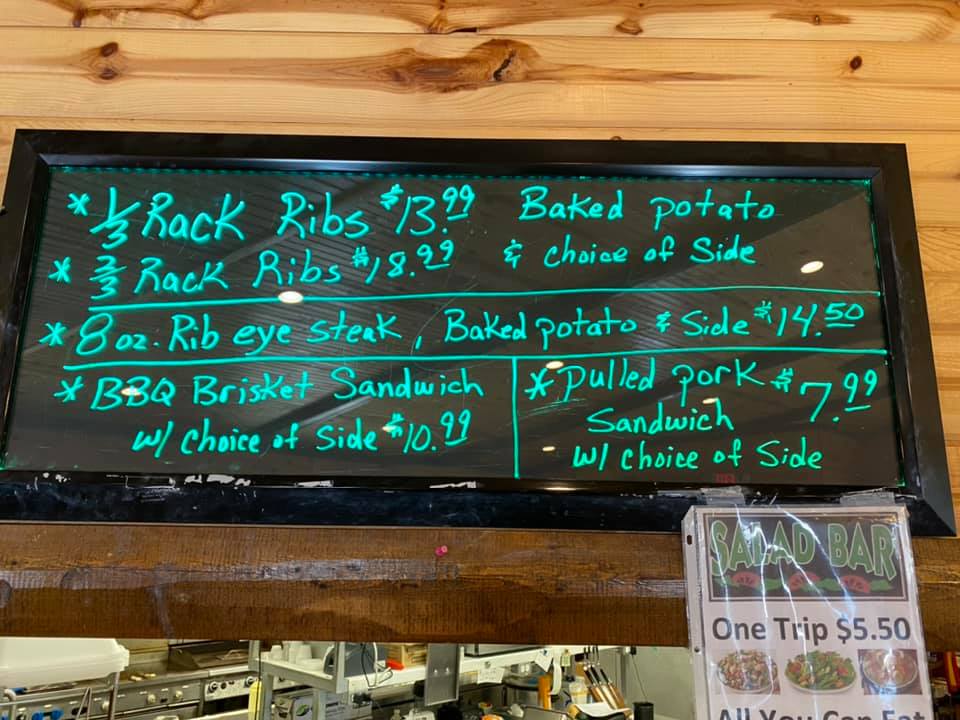 * 1/3 Rack Ribs $13.99 Baked potato
* 2/3 Rack Ribs $18.99 & choice of Side
* 8 oz. Rib eye steak, Baked potato & Side $14.50
* BBQ Brisket Sandwich
w/ choice of Side $10.99
* Pulled pork $7.99
Sandwich
w/ choice of Side
SALAD BAR
One Trip $5.50
All You Can Eat